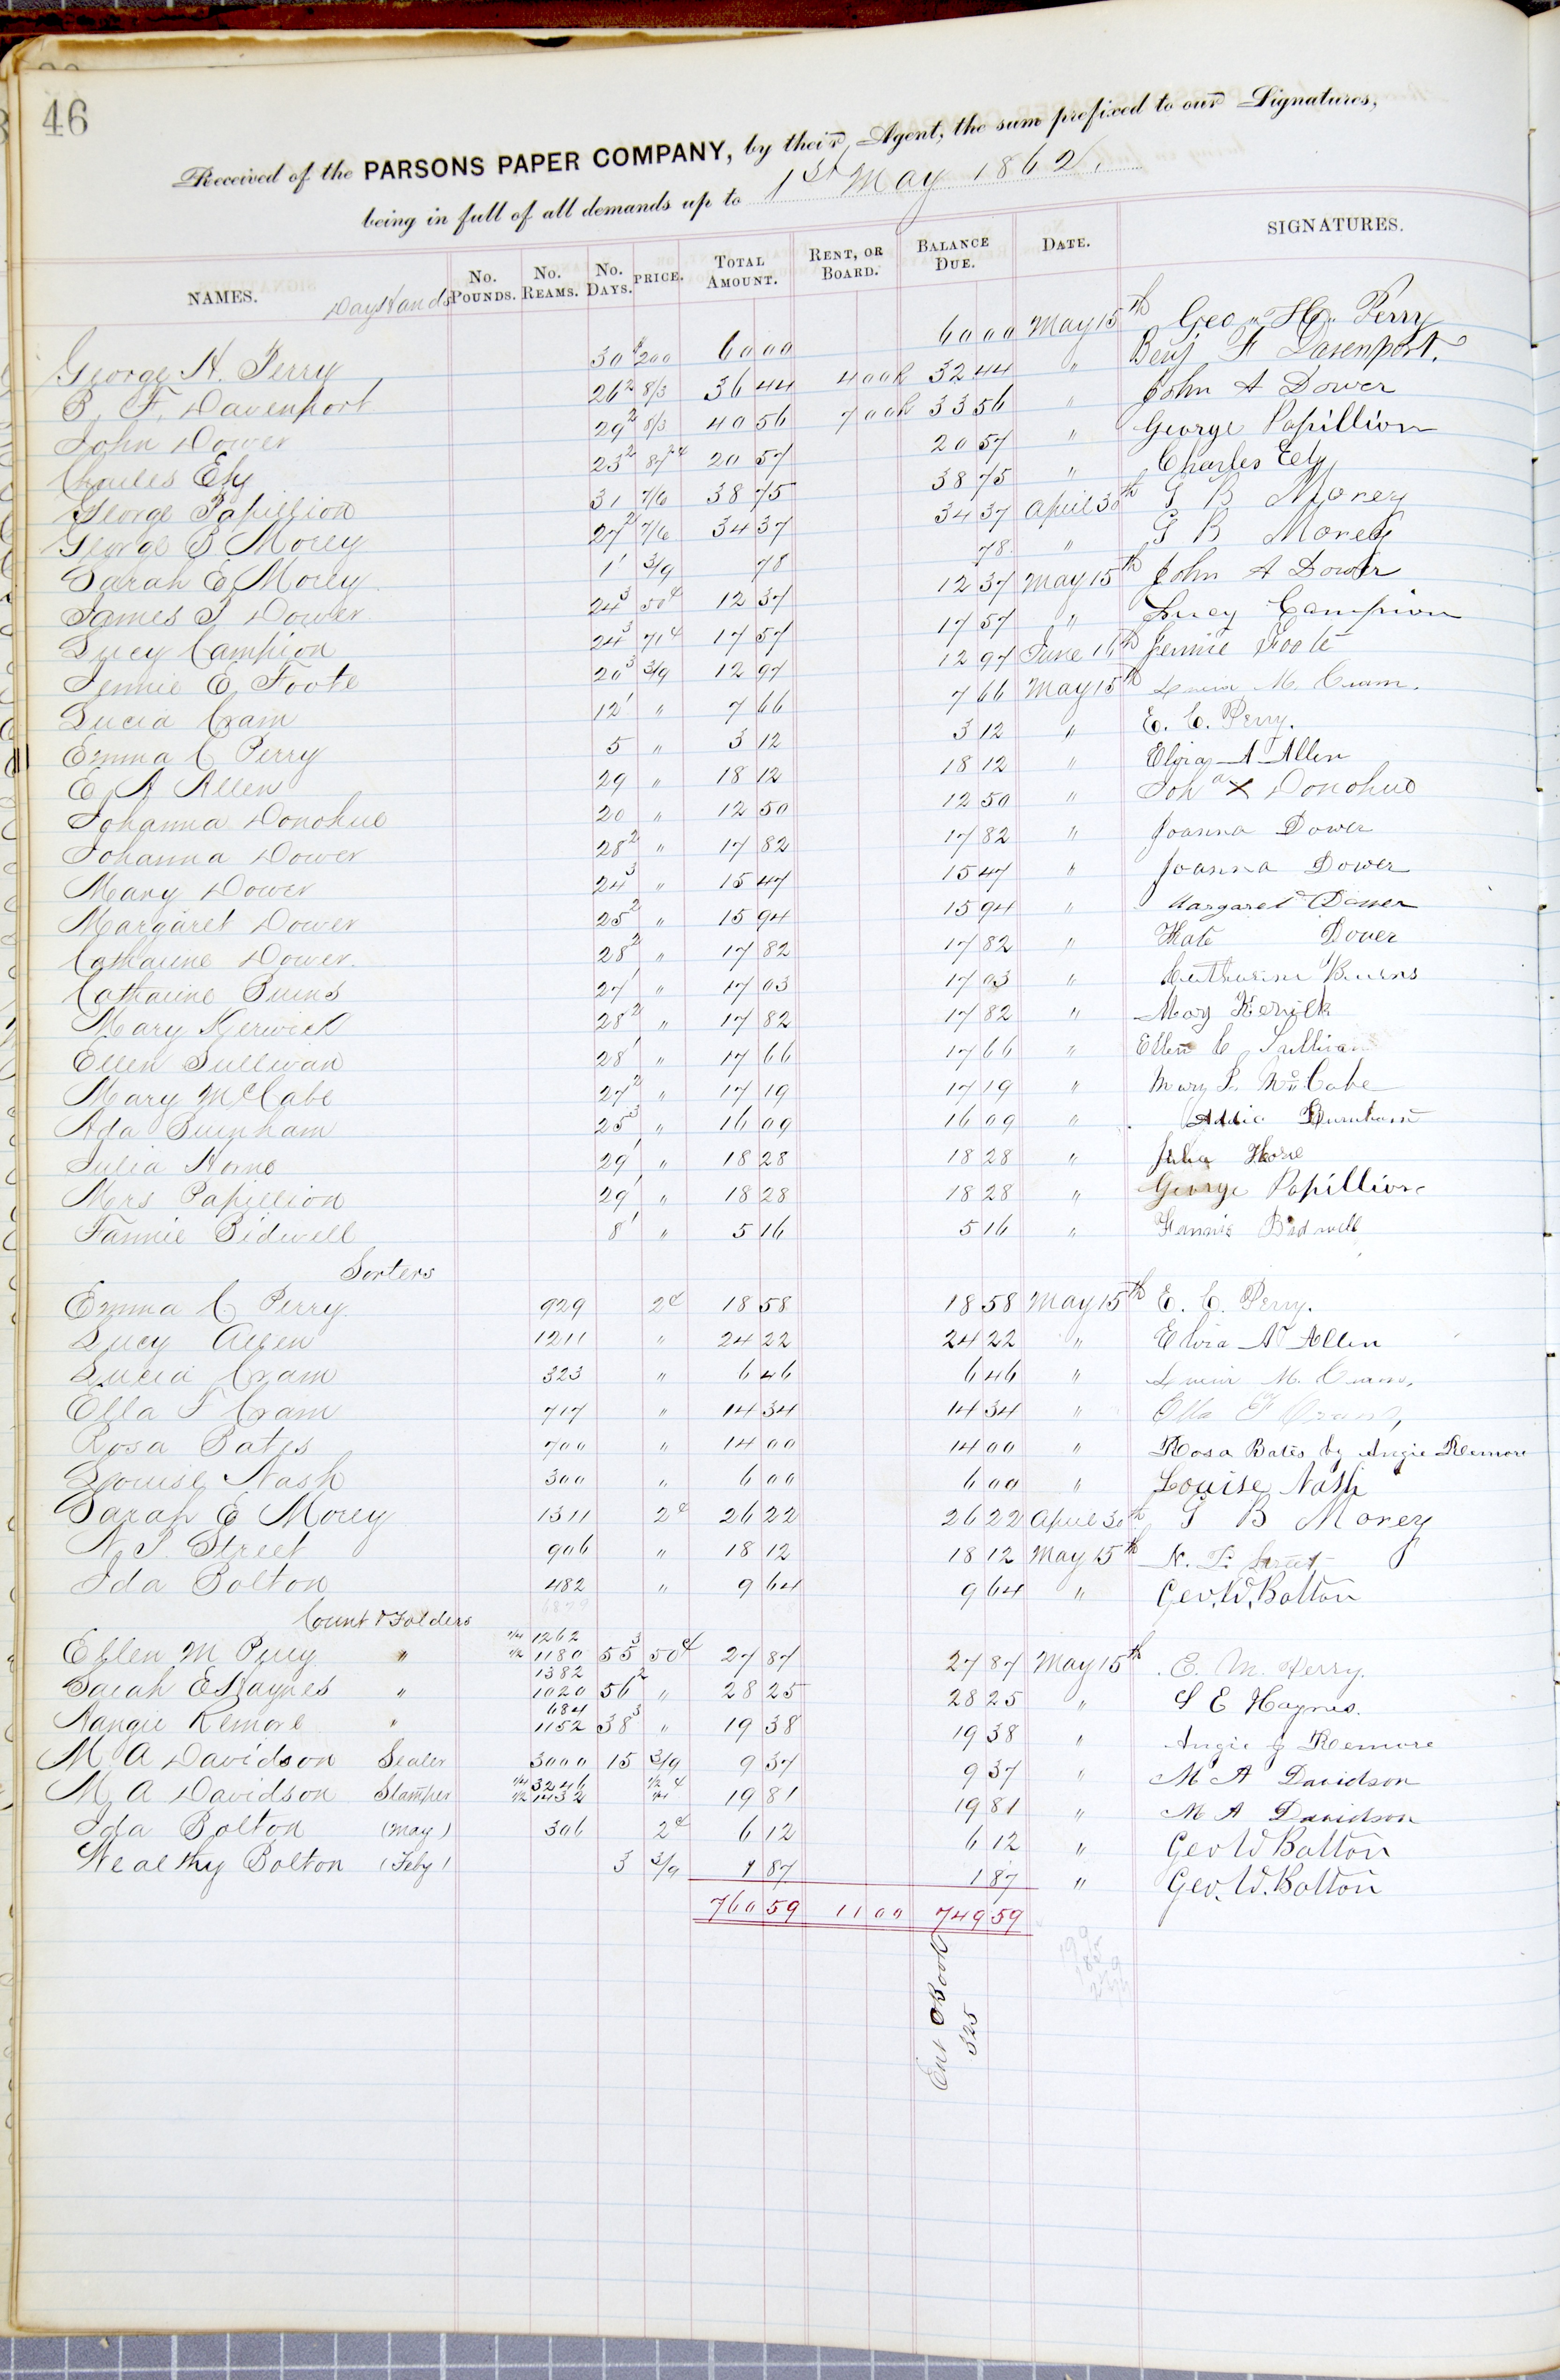 46
Received of the PARSONS PAPER COMPANY, by their Agent, the sum prefixed to our Signatures,
being in full of all demands up to 1st May 1862.
NAMES. Day Hands No. POUNDS. No. REAMS. No. DAYS. PRICE. TOTAL AMOUNT. RENT, OR BOARD. BALANCE DUE. DATE. SIGNATURES.
George H. Perry 30 $200 60 00 60 00 May 15th Geo. H. Perry
B. F. Davenport 26 2 8/3 36 44 4 00 R 32 44 " Benj F Davenport.
John Dower 29 2 8/3 40 56 7 00 R 33 56 " John A Dower
Charles Ely 23 2 87 ¢ 20 57 20 57 " George Papillion
George Papillion 31 7/6 38 75 38 75 " Charles Ely
George B. Morey 27 2 7/6 34 37 34 37 April 30th G B Morey
Sarah E. Morey 1 1 3/9 78 78 " G B Morey
James T Dower 24 3 50 ¢ 12 37 12 37 May 15th John A Dower
Lucy Campion 24 3 71 ¢ 17 57 17 57 " Lucy Campion
Jennie E. Foote 20 3 3/9 12 97 12 97 June 16th Jennie Foote
Lucia Cram 12 1 " 7 66 7 66 May 15th Lucia M. Cram.
Emma C Perry 5 " 3 12 3 12 " E. C. Perry.
E. A Allen 29 " 18 12 18 12 " A Allen
Johanna Donohue 20 " 12 50 12 50 " Joh a X Donohue
Johanna Dower 28 2 " 17 82 17 82 " Joanna Dower
Mary Dower 24 3 " 15 47 15 47 " Joanna Dower
Margaret Dower 25 2 " 15 94 15 94 " Margaret Dower
Catharine Dower. 28 2 " 17 82 17 82 " Kate Dower
Catharine Burns 27 1 " 17 03 17 03 " Catharine Burns
Mary Kerwick 28 2 " 17 82 17 82 " Mary Kerwick
Ellen Sullivan 28 1 " 17 66 17 66 " Ellen C Sullivan
Mary McCabe 27 2 " 17 19 17 19 " Mary McCabe
Ada Burnham 25 3 " 16 09 16 09 " Addie Burnham
Julia Horne 29 1 " 18 28 18 28 " Julia Horne
Mrs Papillion 29 1 " 18 28 18 28 " George Papillion
Fannie Bidwell 8 1 " 5 16 5 16 " Fannie Bidwell
Sorters
Emma C. Perry. 929 2¢ 18 58 18 58 May 15th E. C. Perry.
Lucy Allen 1211 " 24 22 24 22 " A Allen
Lucia Cram 323 " 6 46 6 46 " Lucia M. Cram.
Ella F Cram 717 " 14 34 14 34 " Ella F Cram,
Rosa Bates 700 " 14 00 14 00 " Rosa Bates by Angie Remore
Louise Nash 300 " 6 00 6 00 " Louise Nash
Sarah E Morey 1311 2¢ 26 22 26 22 April 30th G B Morey
N. P. Street 906 " 18 12 18 12 May 15th N. P. Street
Ida Bolton 482 " 9 64 9 64 " Geo. W. Bolton
Count & Folders 6879
1/4 1262
Ellen M Perry " 1/2 1180 55 3 50¢ 27 87 27 87 May 15th E. M. Perry.
1382
Sarah E Haynes " 1020 56 2 " 28 25 28 25 " S E Haynes.
684
Aangie Remore " 1152 38 3 " 19 38 19 38 " Angie Remore
M A Davidson Sealer 3000 15 3/9 9 37 9 37 " M A Davidson
1/4 3246 1/2 ¢
M. A Davidson Stamper 1/2 1432 19 81 19 81 " M A Davidson
Ida Bolton (May) 306 2¢ 6 12 6 12 " Geo W Bolton
Wealthy Bolton (Feby) 3 3/9 1 87 1 87 " Geo. W. Bolton
760 59 11 00 749 59
Ent Book
325